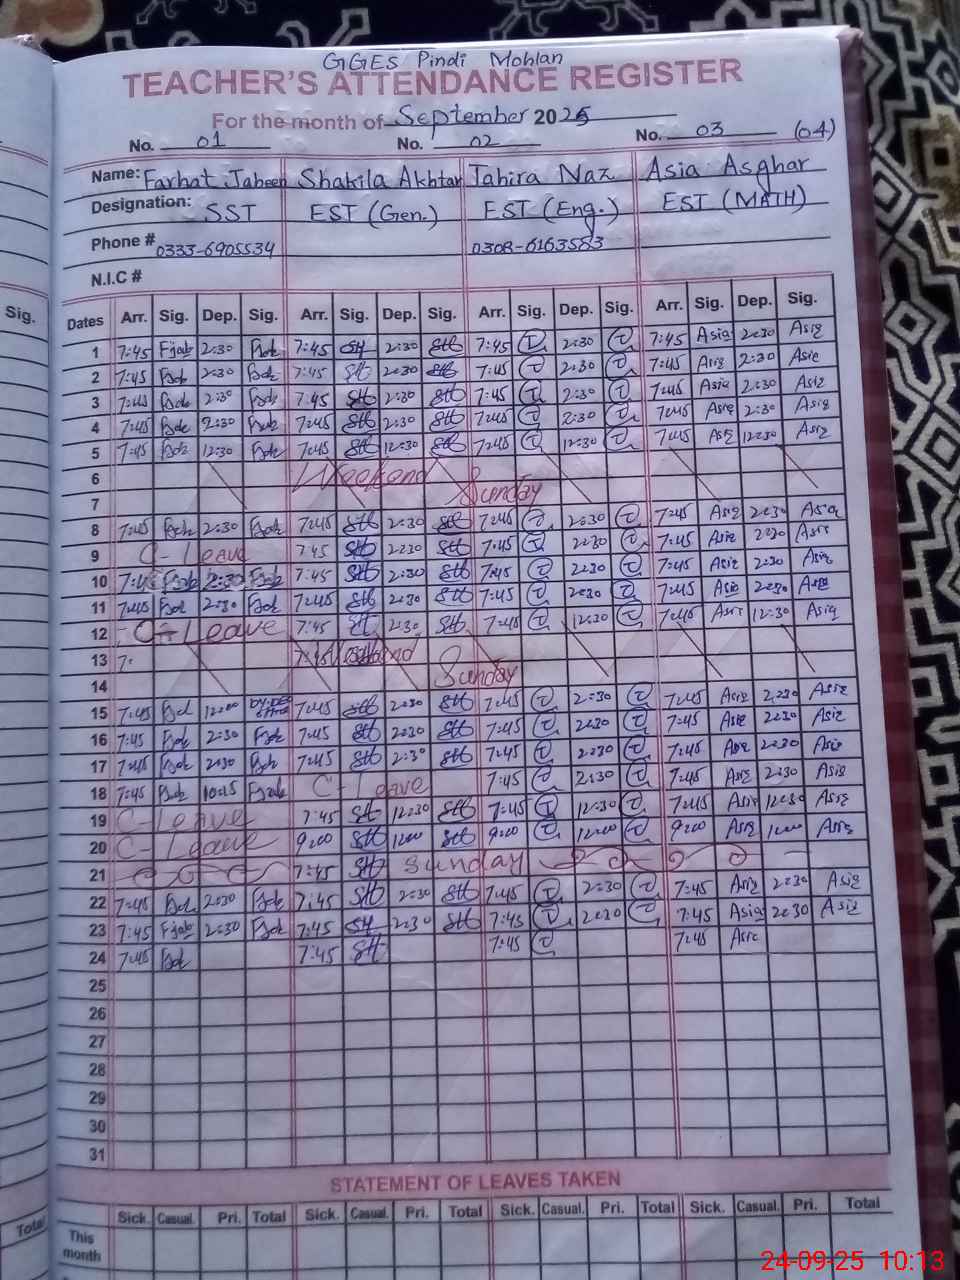 GGES Pindi Mohlan
TEACHER'S ATTENDANCE REGISTER
For the month of September 2025
No. 01 No. 02 No. 03 (04)
Name: Farhat Jabeen Shakila Akhtar Tahira Naz Asia Asghar
Designation: SST EST (Gen.) EST (Eng.) EST (MATH)
Phone # 0333-6905534 0308-6163583
N.I.C #
Sig. Dates Arr. Sig. Dep. Sig. Arr. Sig. Dep. Sig. Arr. Sig. Dep. Sig. Arr. Sig. Dep. Sig.
1 7:45 2:30 7:45 2:30 7:45 2:30 7:45 Asia 2:30 Asia
2 7:45 2:30 7:45 2:30 7:45 2:30 7:45 Asia 2:30 Asia
3 7:45 2:30 7:45 2:30 7:45 2:30 7:45 Asia 2:30 Asia
4 7:45 2:30 7:45 2:30 7:45 2:30 7:45 Asia 2:30 Asia
5 7:45 12:30 7:45 12:30 7:45 12:30 7:45 Asia 12:30 Asia
6 Weekend
7 Sunday
8 7:45 2:30 7:45 2:30 7:45 2:30 7:45 Asia 2:30 Asia
9 C-Leave 7:45 2:30 7:45 2:30 7:45 Asia 2:30 Asia
10 7:45 2:30 7:45 2:30 7:45 2:30 7:45 Asia 2:30 Asia
11 7:45 2:30 7:45 2:30 7:45 2:30 7:45 Asia 2:30 Asia
12 C-Leave 7:45 2:30 7:45 12:30 7:45 Asia 12:30 Asia
13 7: 7:45
14 Sunday
15 7:45 12:00 7:45 2:30 7:45 2:30 7:45 Asia 2:30 Asia
16 7:45 2:30 7:45 2:30 7:45 2:30 7:45 Asia 2:30 Asia
17 7:45 2:30 7:45 2:30 7:45 2:30 7:45 Asia 2:30 Asia
18 7:45 10:15 C-Leave 7:45 2:30 7:45 Asia 2:30 Asia
19 C-Leave 7:45 12:30 7:45 12:30 7:45 Asia 12:30 Asia
20 C-Leave 9:00 12:00 9:00 12:00 9:00 Asia 12:00 Asia
21 7:45 Sunday
22 7:45 2:30 7:45 2:30 7:45 2:30 7:45 Asia 2:30 Asia
23 7:45 2:30 7:45 2:30 7:45 2:30 7:45 Asia 2:30 Asia
24 7:45 7:45 7:45 7:45 Asia
25
26
27
28
29
30
31
STATEMENT OF LEAVES TAKEN
Total Sick. Casual. Pri. Total Sick. Casual. Pri. Total Sick. Casual. Pri. Total Sick. Casual. Pri. Total
This
month
24-09-25 10:13